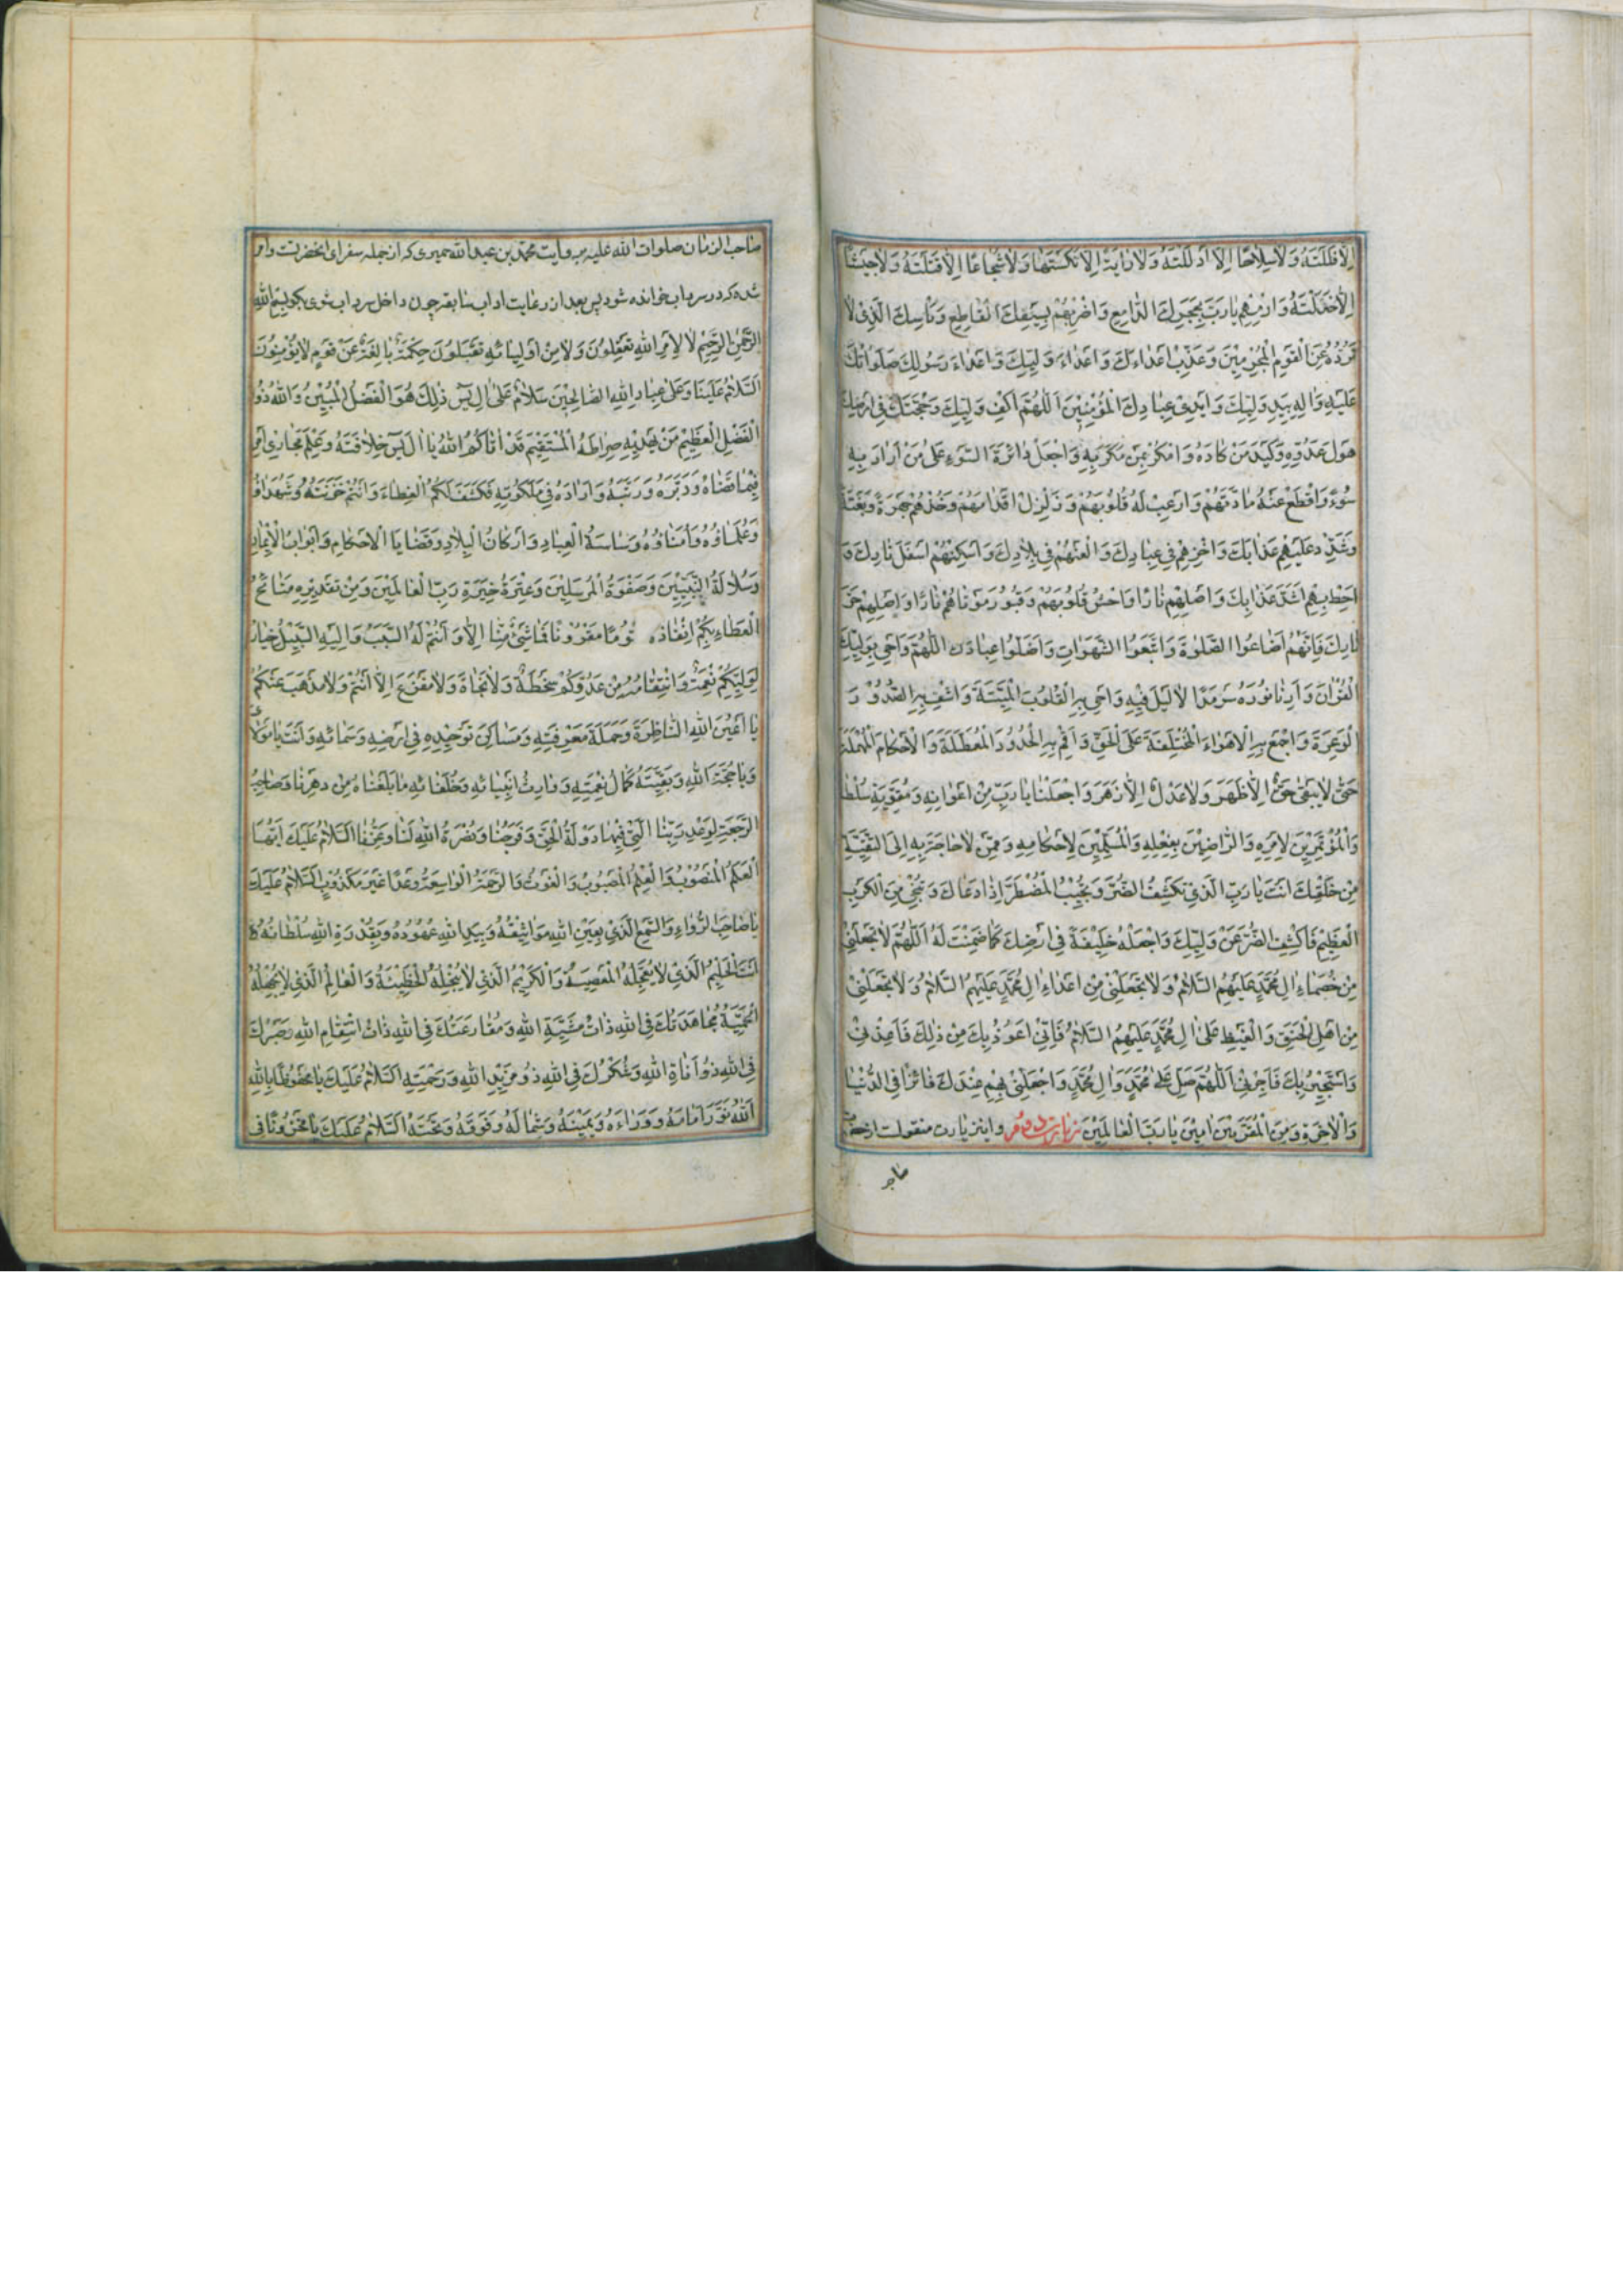 اِلّا فَلَلْتَهُ وَلاسِلاحًا اِلّا اَذْلَلْتَهُ وَلارايَةً اِلّا نَكَسْتَهَا وَلاشُجاعًا اِلّا قَتَلْتَهُ وَلاجَيْشًا
اِلّا خَذَلْتَهُ وَارْمِهِمْ يارَبِّ بِحَجَرِكَ الدّامِغِ وَاضْرِبْهُمْ بِسَيْفِكَ الْقاطِعِ وَبَأْسِكَ الَّذى لا
تَرُدُّهُ عَنِ الْقَوْمِ الْمُجْرِمِيْنَ وَعَذِّبْ اَعْداءَكَ وَاَعْداءَ وَلِيِّكَ وَاَعْداءَ رَسُولِكَ صَلَواتُكَ
عَلَيْهِ وَالِهِ بِيَدِ وَلِيِّكَ وَاَيْدِى عِبادِكَ الْمُؤْمِنِيْنَ اَللّهُمَّ اكْفِ وَلِيَّكَ وَحُجَّتَكَ فِى اَرْضِكَ
هَوْلَ عَدُوِّهِ وَكَيْدَ مَنْ كادَهُ وَامْكُرْ بِمَنْ مَكَرَ بِهِ وَاجْعَلْ دائِرَةَ السَّوْءِ عَلى مَنْ اَرادَ بِهِ
سُوْءً وَاقْطَعْ عَنْهُ مادَّتَهُمْ وَارْعِبْ لَهُ قُلُوبَهُمْ وَزَلْزِلْ اَقْدامَهُمْ وَخُذْهُمْ جَهْرَةً وَبَغْتَةً
وَشَدِّدْ عَلَيْهِمْ عَذابَكَ وَاخْزِهِمْ فِى عِبادِكَ وَالْعَنْهُمْ فِى بِلادِكَ وَاَسْكِنْهُمْ اَسْفَلَ نارِكَ وَ
اَحِطْ بِهِمْ اَشَدَّ عَذابِكَ وَاَصْلِهِمْ نارًا وَاحْشُ قُبُورَ مَوْتاهُمْ نارًا وَاَصْلِهِمْ حَرَّ
نارِكَ فَاِنَّهُمْ اَضاعُوا الصَّلوةَ وَاتَّبَعُوا الشَّهَواتِ وَاَضَلُّوا عِبادَك اَللّهُمَّ وَاَحْىِ بِوَلِيِّكَ
الْقُرْانَ وَاَرِنا نُورَهُ سَرْمَدًا لالَيْلَ فِيْهِ وَاَحْىِ بِهِ الْقُلُوبَ الْمَيِّتَةَ وَاشْفِ بِهِ الصُّدُوْرَ
الْوَغِرَةَ وَاجْمَعْ بِهِ الْاَهْواءَ الْمُخْتَلِفَةَ عَلَى الْحَقِّ وَاَقِمْ بِهِ الْحُدُودَ الْمُعَطَّلَةَ وَالْاَحْكامَ الْمُهْمَلَةَ
حَتّى لايَبْقى حَقٌّ اِلّا ظَهَرَ وَلاعَدْلٌ اِلّا زَهَرَ وَاجْعَلْنا يارَبِّ مِنْ اَعْوانِهِ وَمُقَوِّيَةِ سُلْطا
وَالْمُؤْتَمِرِيْنَ لِاَمْرِهِ وَالرّاضِيْنَ بِفِعْلِهِ وَالْمُسَلِّمِيْنَ لِاَحْكامِهِ وَمِمَّنْ لاحاجَةَ بِهِ اِلَى التَّقِيَّةِ
مِنْ خَلْقِكَ اَنْتَ يارَبِّ الَّذى تَكْشِفُ الضُّرَّ وَتُجِيْبُ الْمُضْطَرَّ اِذا دَعاكَ وَتُنْجِى مِنَ الْكَرْبِ
الْعَظِيْمِ فَاكْشِفِ الضُّرَّ عَنْ وَلِيِّكَ وَاجْعَلْهُ خَلِيْفَةً فِى اَرْضِكَ كَما ضَمِنْتَ لَهُ اَللّهُمَّ لاتَجْعَلْنِى
مِنْ خُصَماءِ الِ مُحَمَّدٍ عَلَيْهِمُ السَّلامُ وَلاتَجْعَلْنِى مِنْ اَعْداءِ الِ مُحَمَّدٍ عَلَيْهِمُ السَّلامُ وَلاتَجْعَلْنِى
مِنْ اَهْلِ الْحَنَقِ وَالْغَيْظِ عَلى الِ مُحَمَّدٍ عَلَيْهِمُ السَّلامُ فَاِنّى اَعُوْذُ بِكَ مِنْ ذلِكَ فَاَعِذْنِىْ
وَاَسْتَجِيْرُ بِكَ فَاَجِرْنِى اَللّهُمَّ صَلِّ عَلى مُحَمَّدٍ وَالِ مُحَمَّدٍ وَاجْعَلْنِى بِهِمْ عِنْدَكَ فائِزًا فِى الدُّنْيا
وَالْاخِرَةِ وَمِنَ الْمُقَرَّبِيْنَ امِيْنَ يارَبَّ الْعالَمِيْنَ زيارت دوم واين زيارت منقولست از حضرت
صاحب
صاحب الزمان صلوات الله عليه بروايت محمد بن عبدالله حميرى كه از جمله سفراى انحضرتست وامر
شده كه در سرداب خوانده شود پس بعد از رعايت اداب سابقه چون داخل سرداب شوى بكو بِسْمِ اللهِ
الرَّحْمنِ الرَّحِيْمِ لا لِاَمْرِ اللهِ تَعْقِلُوْنَ وَلامِنْ اَوْلِيائِهِ تَقْبَلُونَ حِكْمَةٌ بالِغَةٌ عَنْ قَوْمٍ لايُؤْمِنُوْنَ
اَلسَّلامُ عَلَيْنا وَعَلى عِبادِ اللهِ الصّالِحِيْنَ سَلامٌ عَلى الِ يس ذلِكَ هُوَ الْفَضْلُ الْمُبِيْنُ وَاللهُ ذُو
الْفَضْلِ الْعَظِيْمِ مَنْ يَهْدِيْهِ صِراطَهُ الْمُسْتَقِيْمَ قَدْ اتاكُمُ اللهُ ياالَ يس خِلافَتَهُ وَعِلْمَ مَجارِى اَمْرِهِ
فِيْما قَضاهُ وَدَبَّرَهُ وَرَتَّبَهُ وَاَرادَهُ فِى مَلَكُوْتِهِ فَكَشَفَ لَكُمُ الْغِطاءَ وَاَنْتُمْ خَزَنَتُهُ وَشُهَداؤُ
وَعُلَماؤُهُ وَاُمَناؤُهُ وَساسَةُ الْعِبادِ وَاَرْكانُ الْبِلادِ وَقُضايَا الْاَحْكامِ وَاَبْوابُ الْاِيْمانِ
وَسُلالَةُ النَّبِيّيْنَ وَصَفْوَةُ الْمُرْسَلِيْنَ وَعِتْرَةُ خِيَرَةِ رَبِّ الْعالَمِيْنَ وَمِنْ تَقْدِيْرِهِ مَنائِحُ
الْعَطاءِ بِكُمْ اِنْفاذُهُ مَقْرُوْنًا فَما شَىْءٌ مِنّا اِلّا وَاَنْتُمْ لَهُ السَّبَبُ وَاِلَيْهِ السَّبِيْلُ خِيارُ
لِوَلِيِّكُمْ نِعْمَةٌ وَانْتِقامُهُ مِنْ عَدُوِّكُمْ سَخْطَةٌ وَلانَجاةَ وَلامَفْزَعَ اِلّا اَنْتُمْ وَلامَذْهَبَ عَنْكُمْ
يا اَعْيُنَ اللهِ النّاظِرَةَ وَحَمَلَةَ مَعْرِفَتِهِ وَمَساكِنَ تَوْحِيْدِهِ فِى اَرْضِهِ وَسَمائِهِ وَاَنْتَ يامَوْلاىَ
وَياحُجَّةَ اللهِ وَبَقِيَّتَهُ كَمالُ نِعْمَتِهِ وَوارِثُ اَنْبِيائِهِ وَخُلَفائِهِ مابَلَغْناهُ مِنْ دَهْرِنا وَصاحِبُ
الرَّجْعَةِ لِوَعْدِ رَبِّنا الَّتِى فِيْها دَوْلَةُ الْحَقِّ وَفَرَجُنا وَنُصْرَةُ اللهِ لَنا وَعِزُّنا اَلسَّلامُ عَلَيْكَ اَيُّهَا
الْعَلَمُ الْمَنْصُوْبُ وَالْعِلْمُ الْمَصْبُوْبُ وَالْغَوْثُ وَالرَّحْمَةُ الْواسِعَةُ وَعْدًا غَيْرَ مَكْذُوْبٍ اَلسَّلامُ عَلَيْكَ
ياصاحِبَ الْمَرْءاى وَالْمَسْمَعِ الَّذِى بِعَيْنِ اللهِ مَواثِيْقُهُ وَبِيَدِ اللهِ عُهُوْدُهُ وَبِقُدْرَةِ اللهِ سُلْطانُهُ
اَنْتَ الْحَلِيْمُ الَّذِىْ لاتُعَجِّلُهُ الْمَعْصِيَةُ وَالْكَرِيْمُ الَّذِى لاتُبْخِلُهُ الْحَفِيْظَةُ وَالْعالِمُ الَّذِى لاتُجَهِّلُهُ
الْحَمِيَّةُ مُجاهَدَتُكَ فِى اللهِ ذاتُ مَشِيَّةِ اللهِ وَمُقارَعَتُكَ فِى اللهِ ذاتُ انْتِقامِ اللهِ وَصَبْرُكَ
فِى اللهِ ذُوْ اَناةِ اللهِ وَشُكْرُكَ فِى اللهِ ذُو مَزِيْدِ اللهِ وَرَحْمَتِهِ اَلسَّلامُ عَلَيْكَ يامَحْفُوْظًا بِاللهِ
اَللهُ نَوَّرَ اَمامَهُ وَوَراءَهُ وَيَمِيْنَهُ وَشِمالَهُ وَفَوْقَهُ وَتَحْتَهُ اَلسَّلامُ عَلَيْكَ يامَخْزُوْنًا فِى